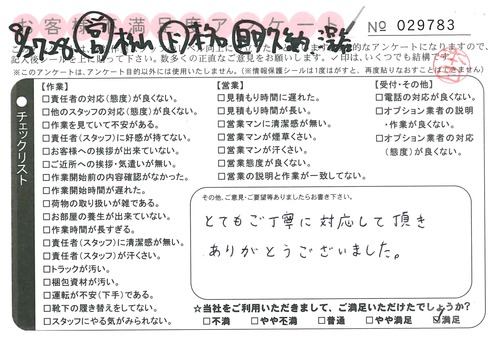 お客様満足度アンケート
No 029783
8/27.28
記入後シールを上に貼って下さい。数多くの正直なご意見をお願いします。✓印は、いくつでも結構です。
※このアンケートは、アンケート目的以外には使用いたしません。(※情報保護シールは1度はがすと、再度貼りなおすことはできません)
チェックリスト
【作業】
□責任者の対応(態度)が良くない。
□他のスタッフの対応(態度)が良くない。
□作業を見ていて不安がある。
□責任者(スタッフ)に好感が持てない。
□お客様への挨拶が出来ていない。
□ご近所への挨拶・気遣いが無い。
□作業開始前の内容確認がなかった。
□作業開始時間が遅れた。
□荷物の取り扱いが雑である。
□お部屋の養生が出来ていない。
□作業時間が長すぎる。
□責任者(スタッフ)に清潔感が無い。
□責任者(スタッフ)が汗くさい。
□トラックが汚い。
□梱包資材が汚い。
□運転が不安(下手)である。
□靴下の履き替えをしてない。
□スタッフにやる気がみられない。
【営業】
□見積もり時間に遅れた。
□見積もり時間が長い。
□営業マンに清潔感が無い。
□営業マンが煙草くさい。
□営業マンが汗くさい。
□営業態度が良くない。
□営業の説明と作業が一致してない。
【受付・その他】
□電話の対応が良くない。
□オプション業者の説明
・作業が良くない。
□オプション業者の対応
(態度)が良くない。
その他、ご意見・ご要望等ありましたらお書き下さい。
とてもご丁寧に対応して頂き
ありがとうございました。
☆当社をご利用いただきまして、ご満足いただけたでしょうか?
□不満 □やや不満 □普通 □やや満足 ☑満足